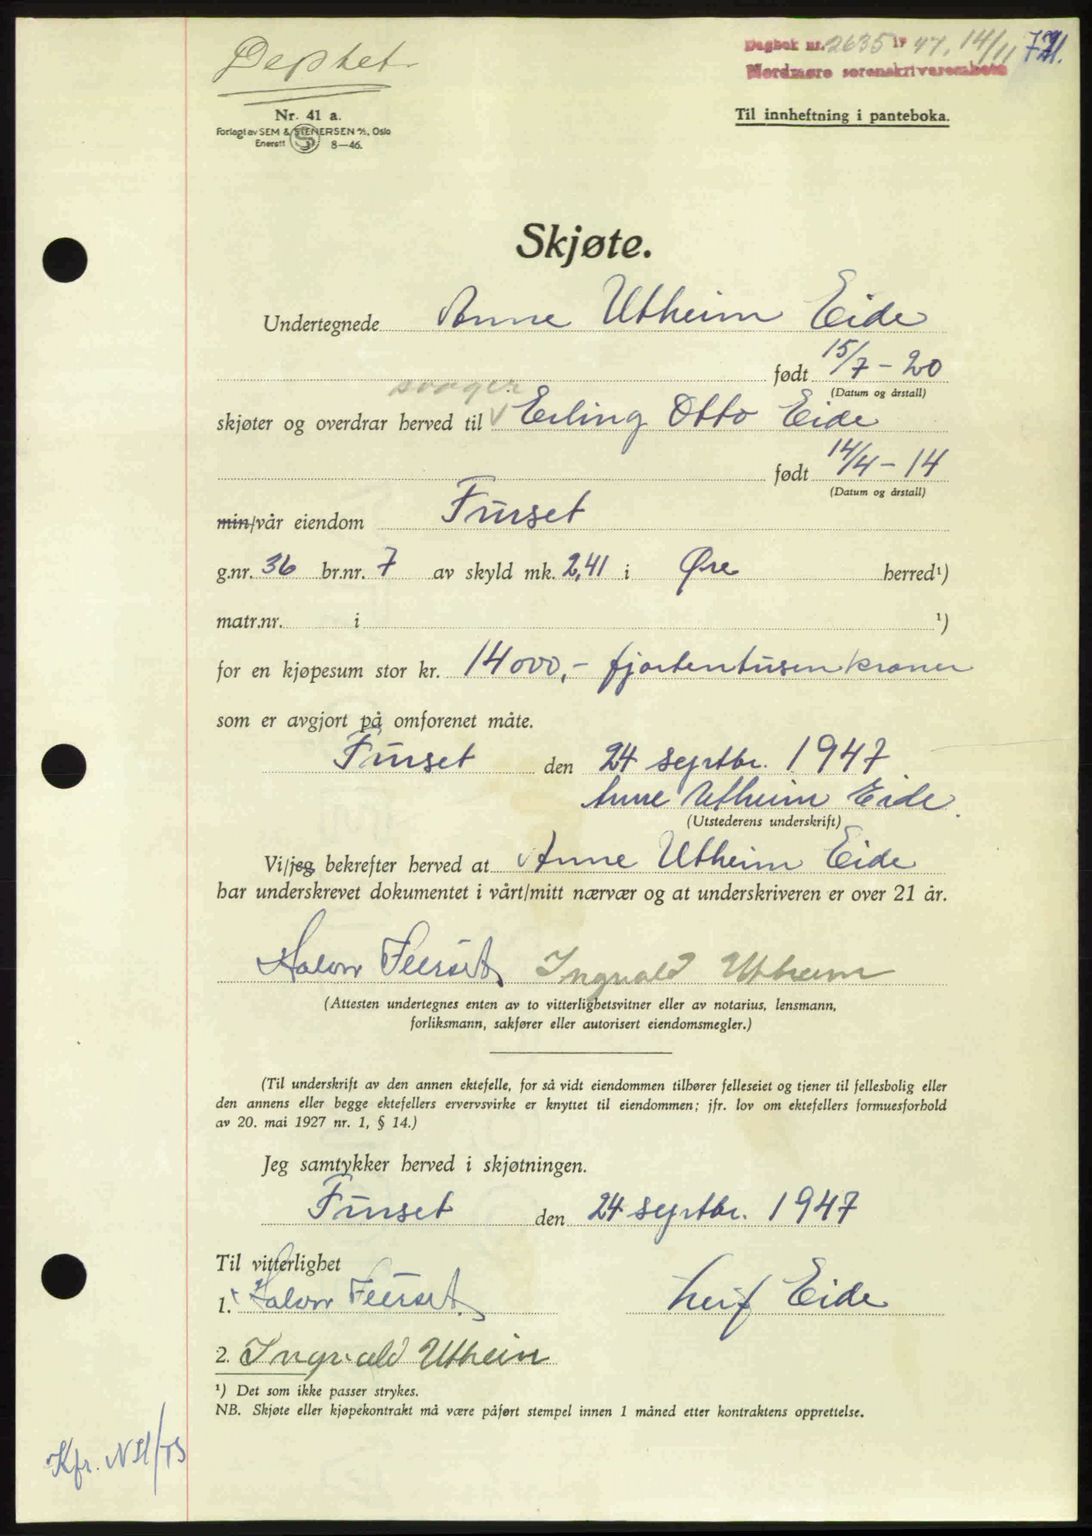 Deptet
Dagbok nr. 2635 19 47, 14/11 721.
Nordmøre sorenskriverembete
Nr. 41 a.
Forlagt av SEM & STENERSEN A/S, Oslo
Enerett S 8—46.
Til innheftning i panteboka.
Skjøte.
Undertegnede Anne Utheim Eide
født 15/7 - 20
(Datum og årstall)
svoger
skjøter og overdrar herved til Erling Otto Eide
født 14/4 - 14
(Datum og årstall)
min/vår eiendom Furset
g.nr. 36 br.nr. 7 av skyld mk. 2,41 i Øre herred¹)
matr.nr. i ¹)
for en kjøpesum stor kr. 14000,- fjortentusen kroner
som er avgjort på omforenet måte.
Furset den 24 septbr. 1947
Anne Utheim Eide.
(Utstederens underskrift)
Vi/jeg bekrefter herved at Anne Utheim Eide
har underskrevet dokumentet i vårt/mitt nærvær og at underskriveren er over 21 år.
Halvor Fuerset Ingvald Utheim
(Attesten undertegnes enten av to vitterlighetsvitner eller av notarius, lensmann,
forliksmann, sakfører eller autorisert eiendomsmegler.)
(Til underskrift av den annen ektefelle, for så vidt eiendommen tilhører felleseiet og tjener til fellesbolig eller
den annens eller begge ektefellers ervervsvirke er knyttet til eiendommen; jfr. lov om ektefellers formuesforhold
av 20. mai 1927 nr. 1, § 14.)
Jeg samtykker herved i skjøtningen.
Furset den 24 septbr. 1947
Til vitterlighet
1. Halvor Fuerset. Leif Eide
2. Ingvald Utheim
¹) Det som ikke passer strykes.
NB. Skjøte eller kjøpekontrakt må være påført stempel innen 1 måned etter kontraktens opprettelse.
Kfr.